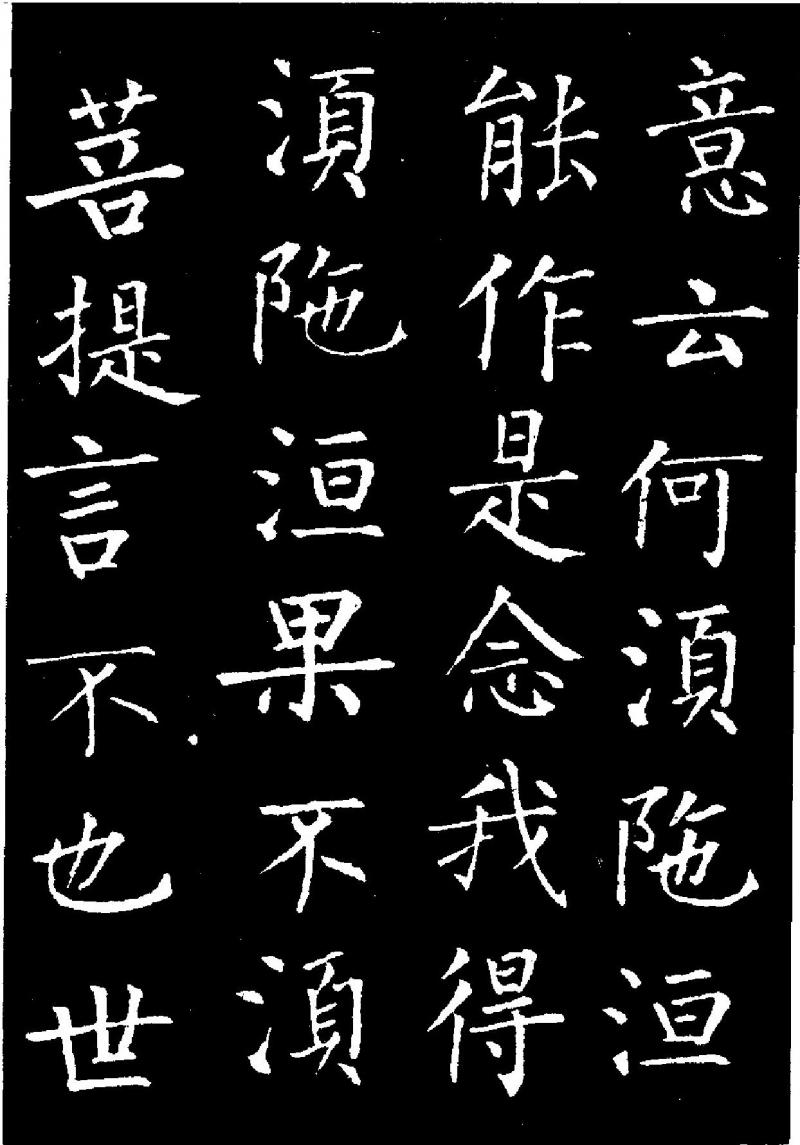 意云何湏陁洹
能作是念我得
湏陁洹果不湏
菩提言不也世